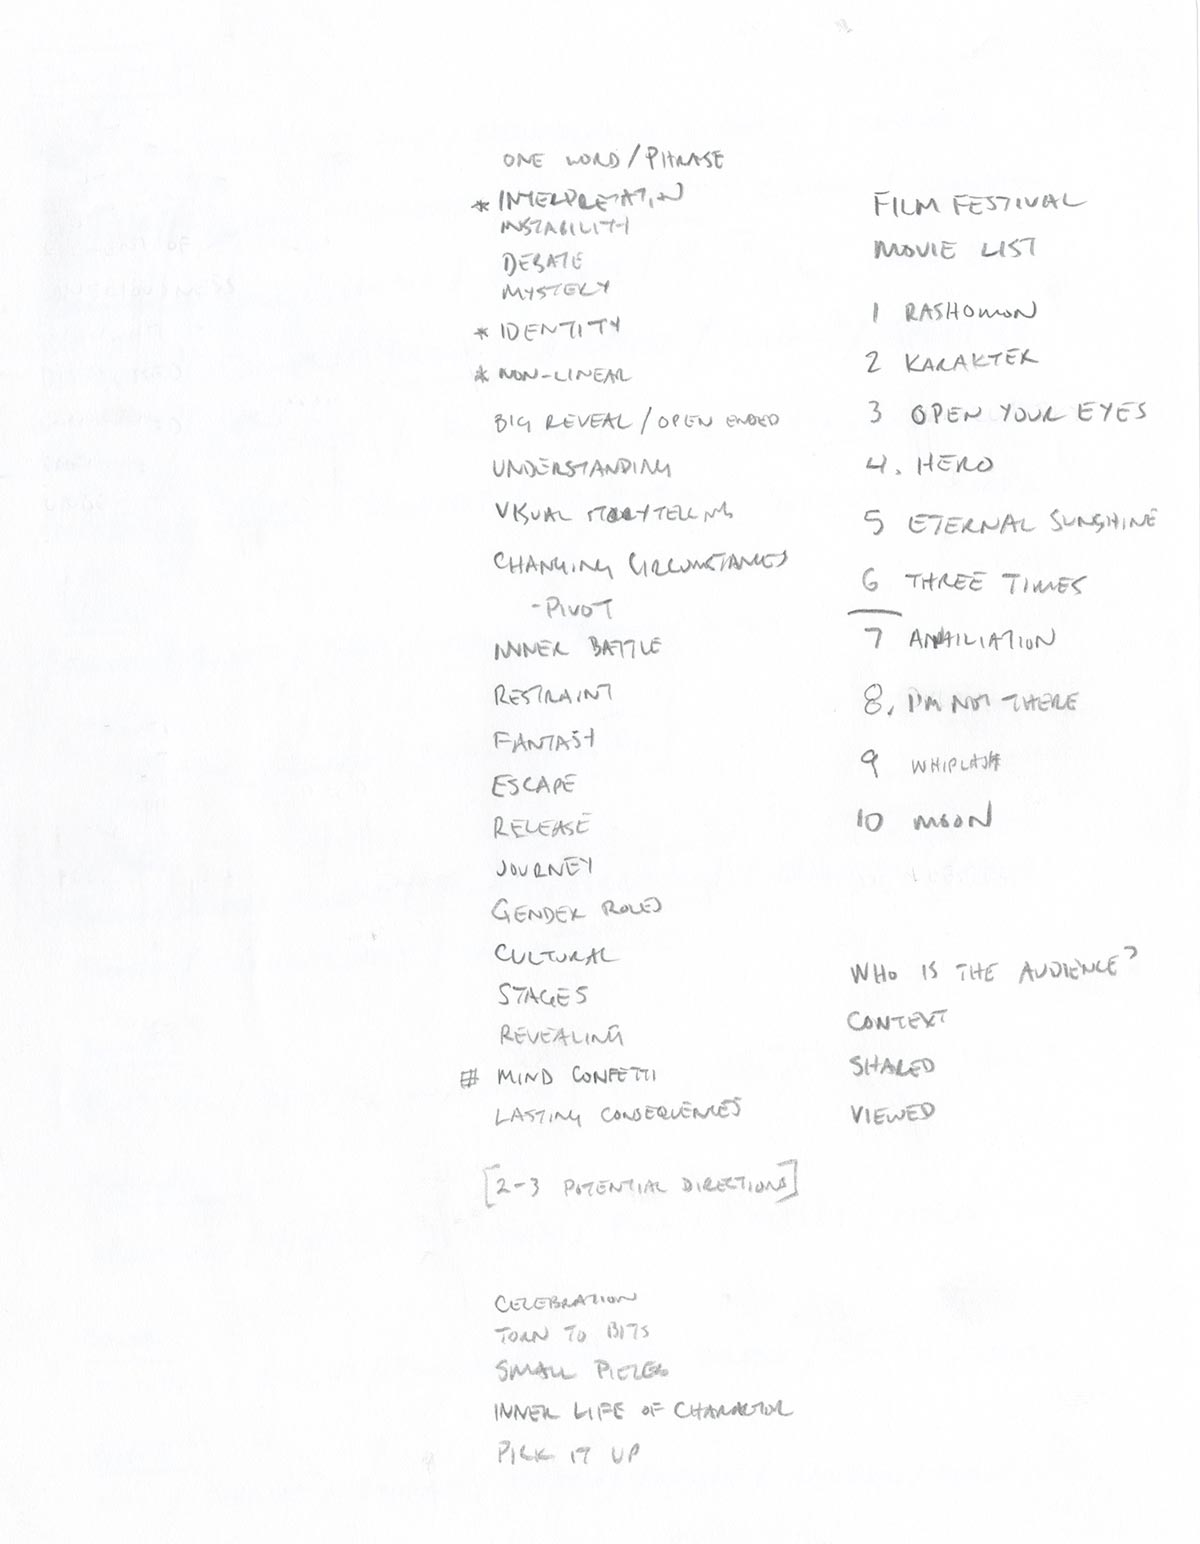 ONE WORD / PHRASE
* INTERPRETATIN
INSTABILITY
DEBATE
MYSTERY
* IDENTITY
* NON-LINEAR
BIG REVEAL / OPEN ENDED
UNDERSTANDING
VISUAL STORYTELLING
CHANGING CIRCUMSTANCES
- PIVOT
INNER BATTLE
RESTRAINT
FANTASY
ESCAPE
RELEASE
JOURNEY
GENDER ROLES
CULTURAL
STAGES
REVEALING
# MIND CONFETTI
LASTING CONSEQUENCES
[2-3 POTENTIAL DIRECTIONS]
CELEBRATION
TORN TO BITS
SMALL PIECES
INNER LIFE OF CHARACTOR
PICK IT UP
FILM FESTIVAL
MOVIE LIST
1 RASHOMON
2 KARAKTER
3 OPEN YOUR EYES
4. HERO
5 ETERNAL SUNSHINE
6 THREE TIMES
7
8. I'M NOT THERE
9 WHIPLASH
10 MOON
WHO IS THE AUDIENCE?
CONTEXT
SHARED
VIEWED